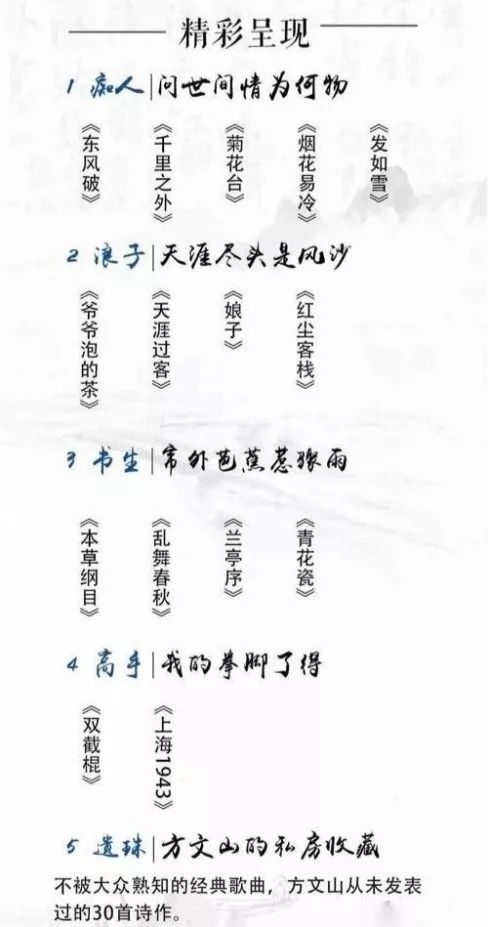 精彩呈现
1 痴人|问世间情为何物
《东风破》
《千里之外》
《菊花台》
《烟花易冷》
《发如雪》
2 浪子|天涯尽头是风沙
《爷爷泡的茶》
《天涯过客》
《娘子》
《红尘客栈》
3 书生|帘外芭蕉惹骤雨
《本草纲目》
《乱舞春秋》
《兰亭序》
《青花瓷》
4 高手|我的拳脚了得
《双截棍》
《上海1943》
5 遗珠|方文山的私房收藏
不被大众熟知的经典歌曲，方文山从未发表
过的30首诗作。